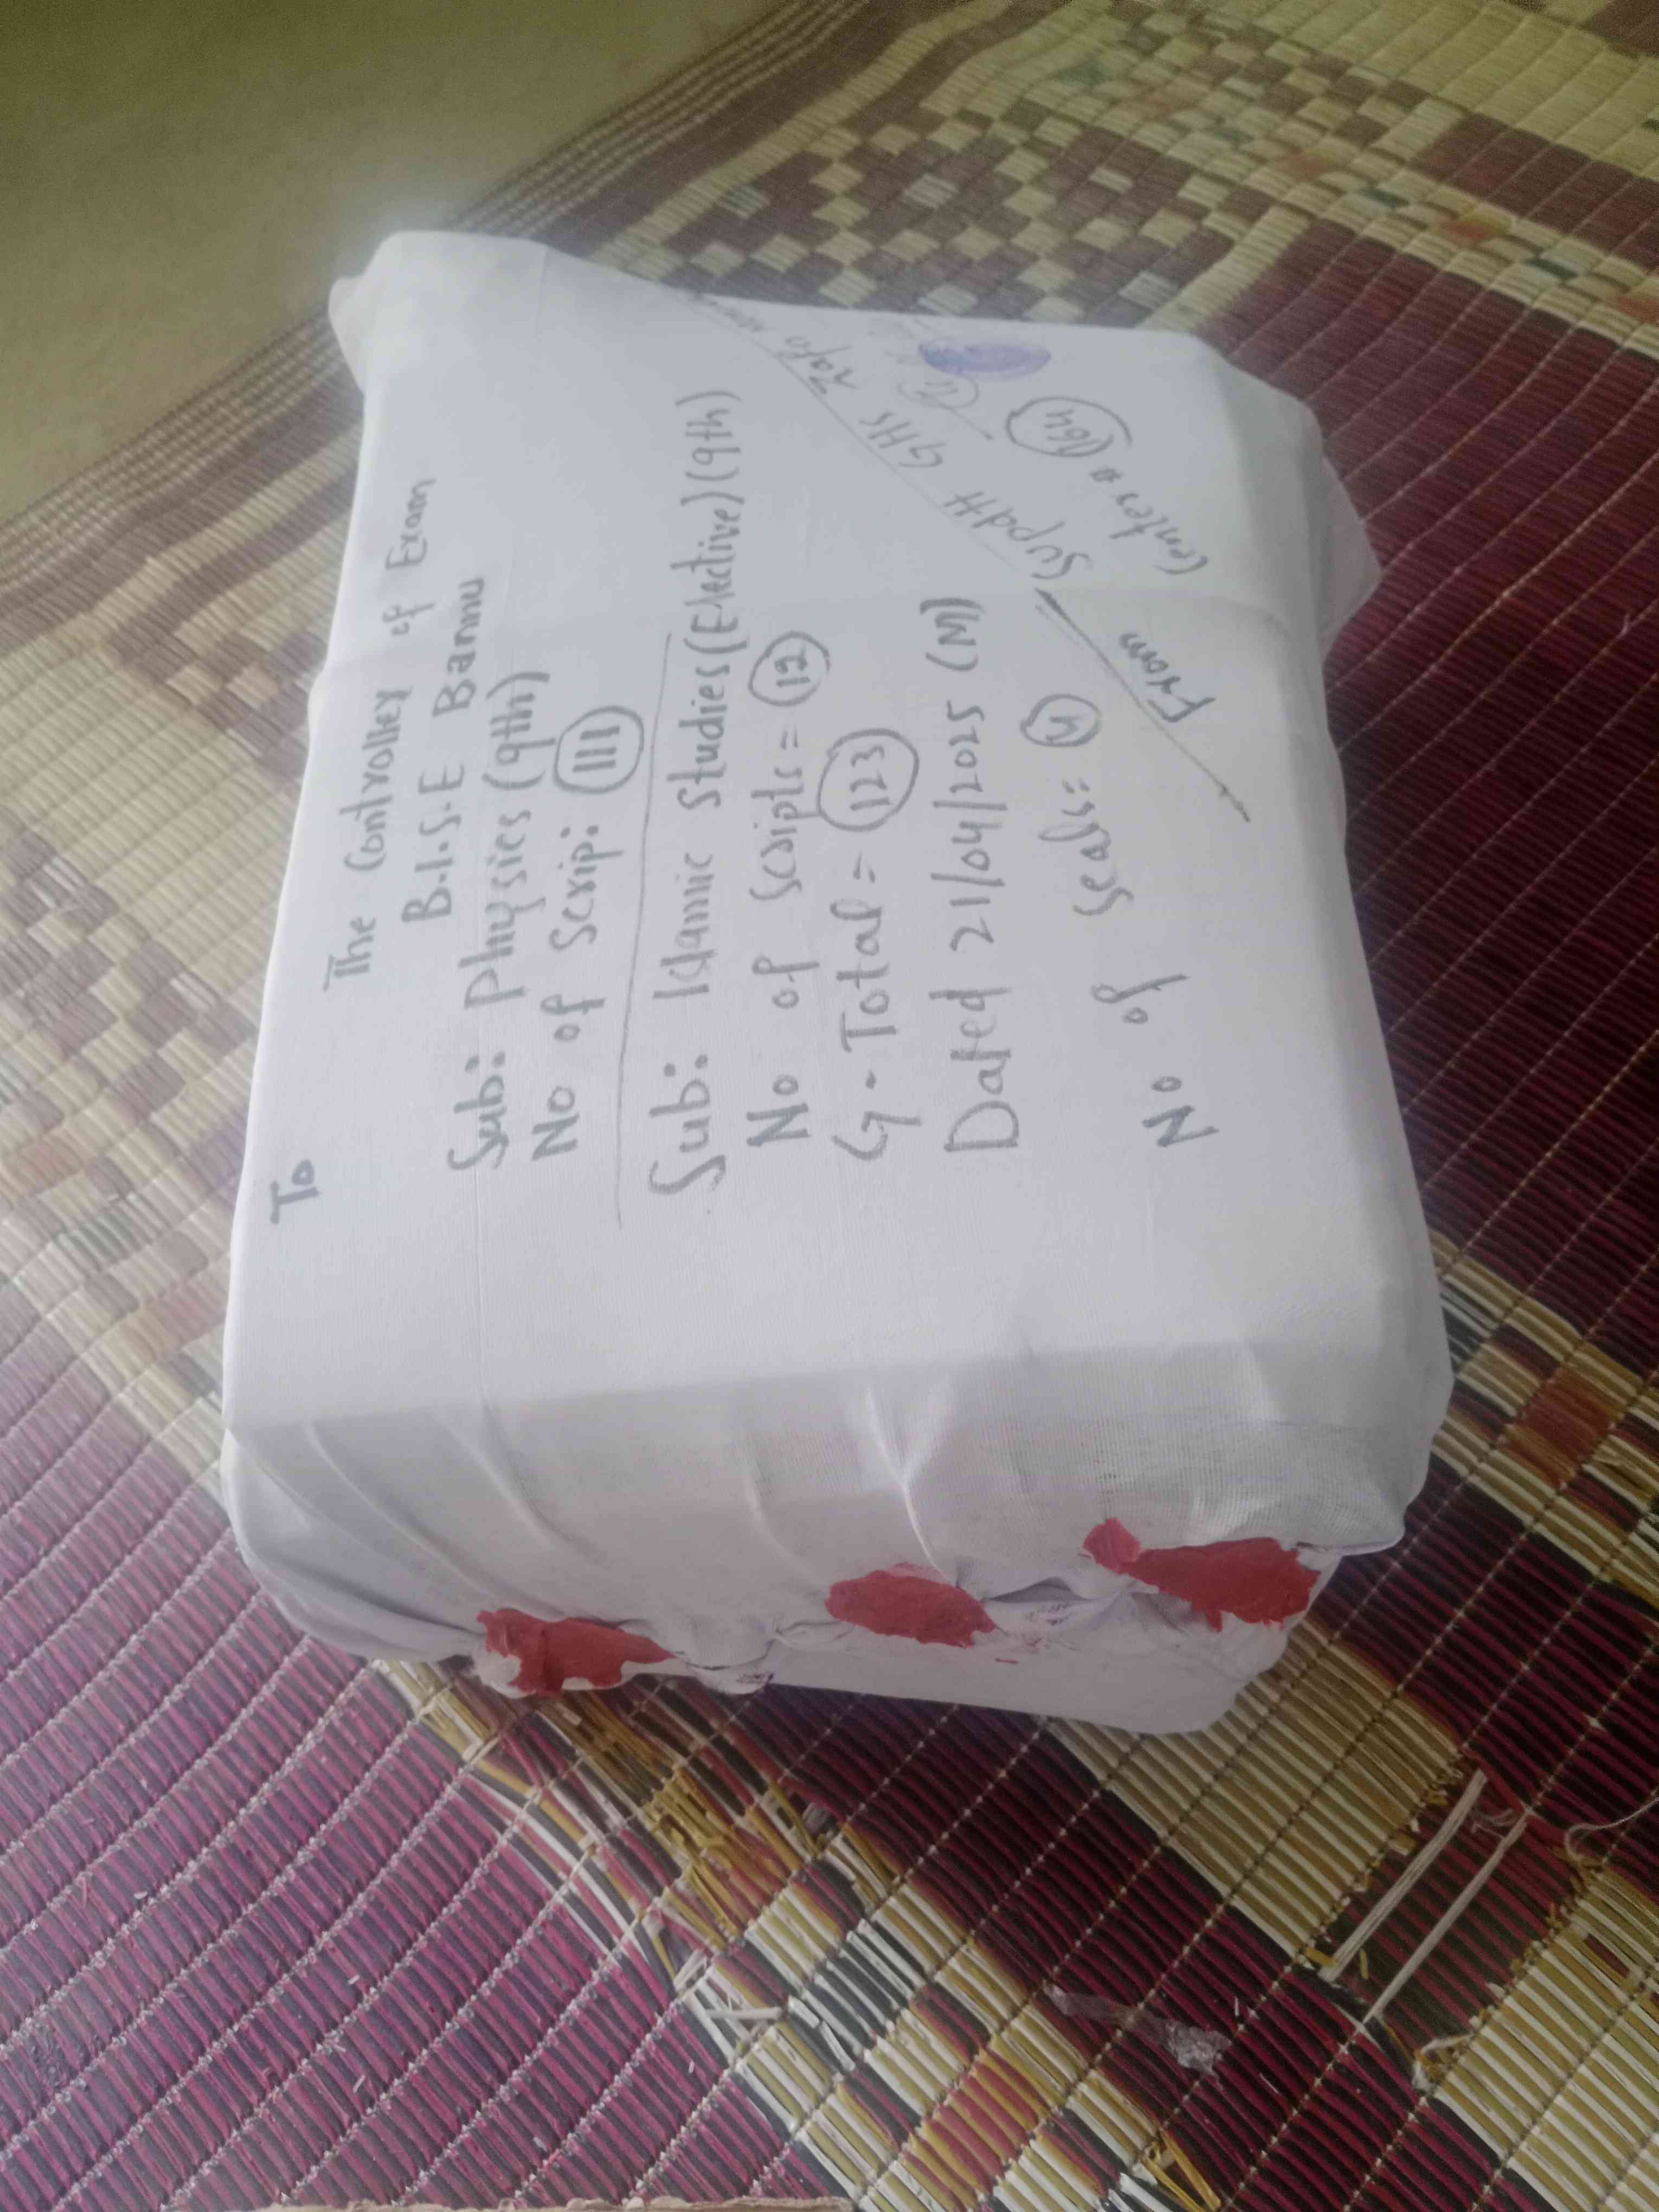 To
The Controller of Exam
B.I.S.E Bannu
Sub: Physics (9th)
No of Scrip: 111
Sub: Islamic Studies (Elective) (9th)
No of Scripts = 12
G-Total = 123
Dated 21/04/2025 (M)
No of Seals: 4
From
Supdtt GHS
Center # 164